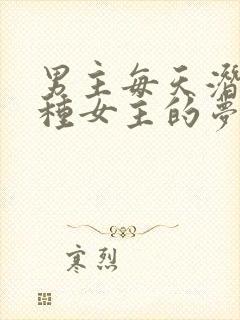 男主每天潛
種女主的夢
寒烈